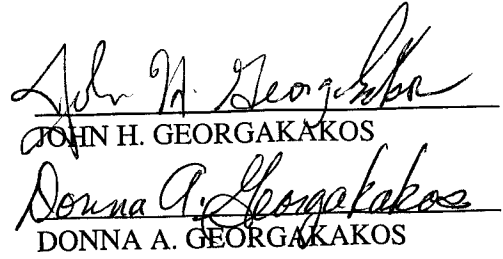 John H. Georgakakos
JOHN H. GEORGAKAKOS
Donna A. Georgakakos
DONNA A. GEORGAKAKOS